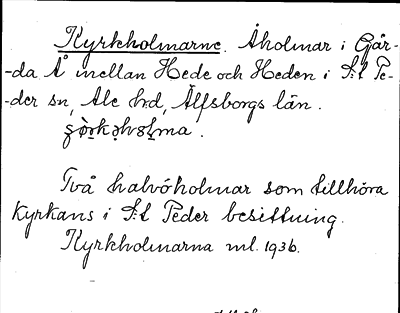 Kyrkholmarne. Åholmar i Går-
-da Å mellan Hede och Heden i S:t Pe-
-der sn, Ale hd, Älfsborgs län.
Två halvöholmar som tillhöra
Kyrkans i S:t Peder besittning.
Kyrkholmarna ml. 1936.